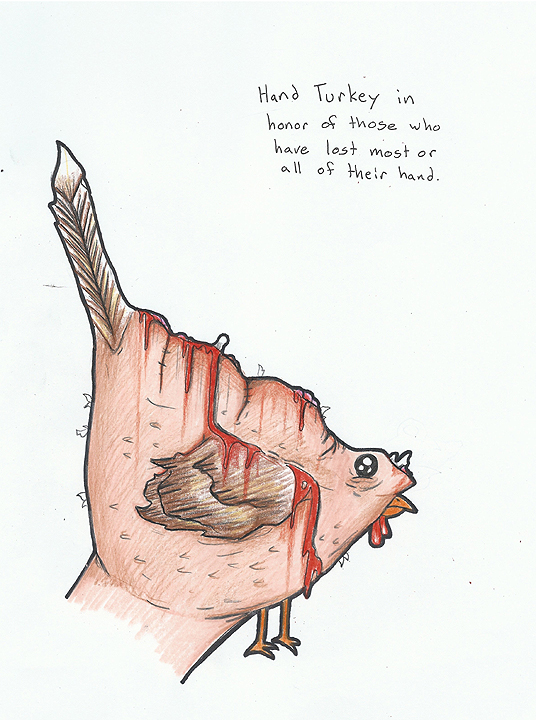 Hand Turkey in
honor of those who
have lost most or
all of their hand.